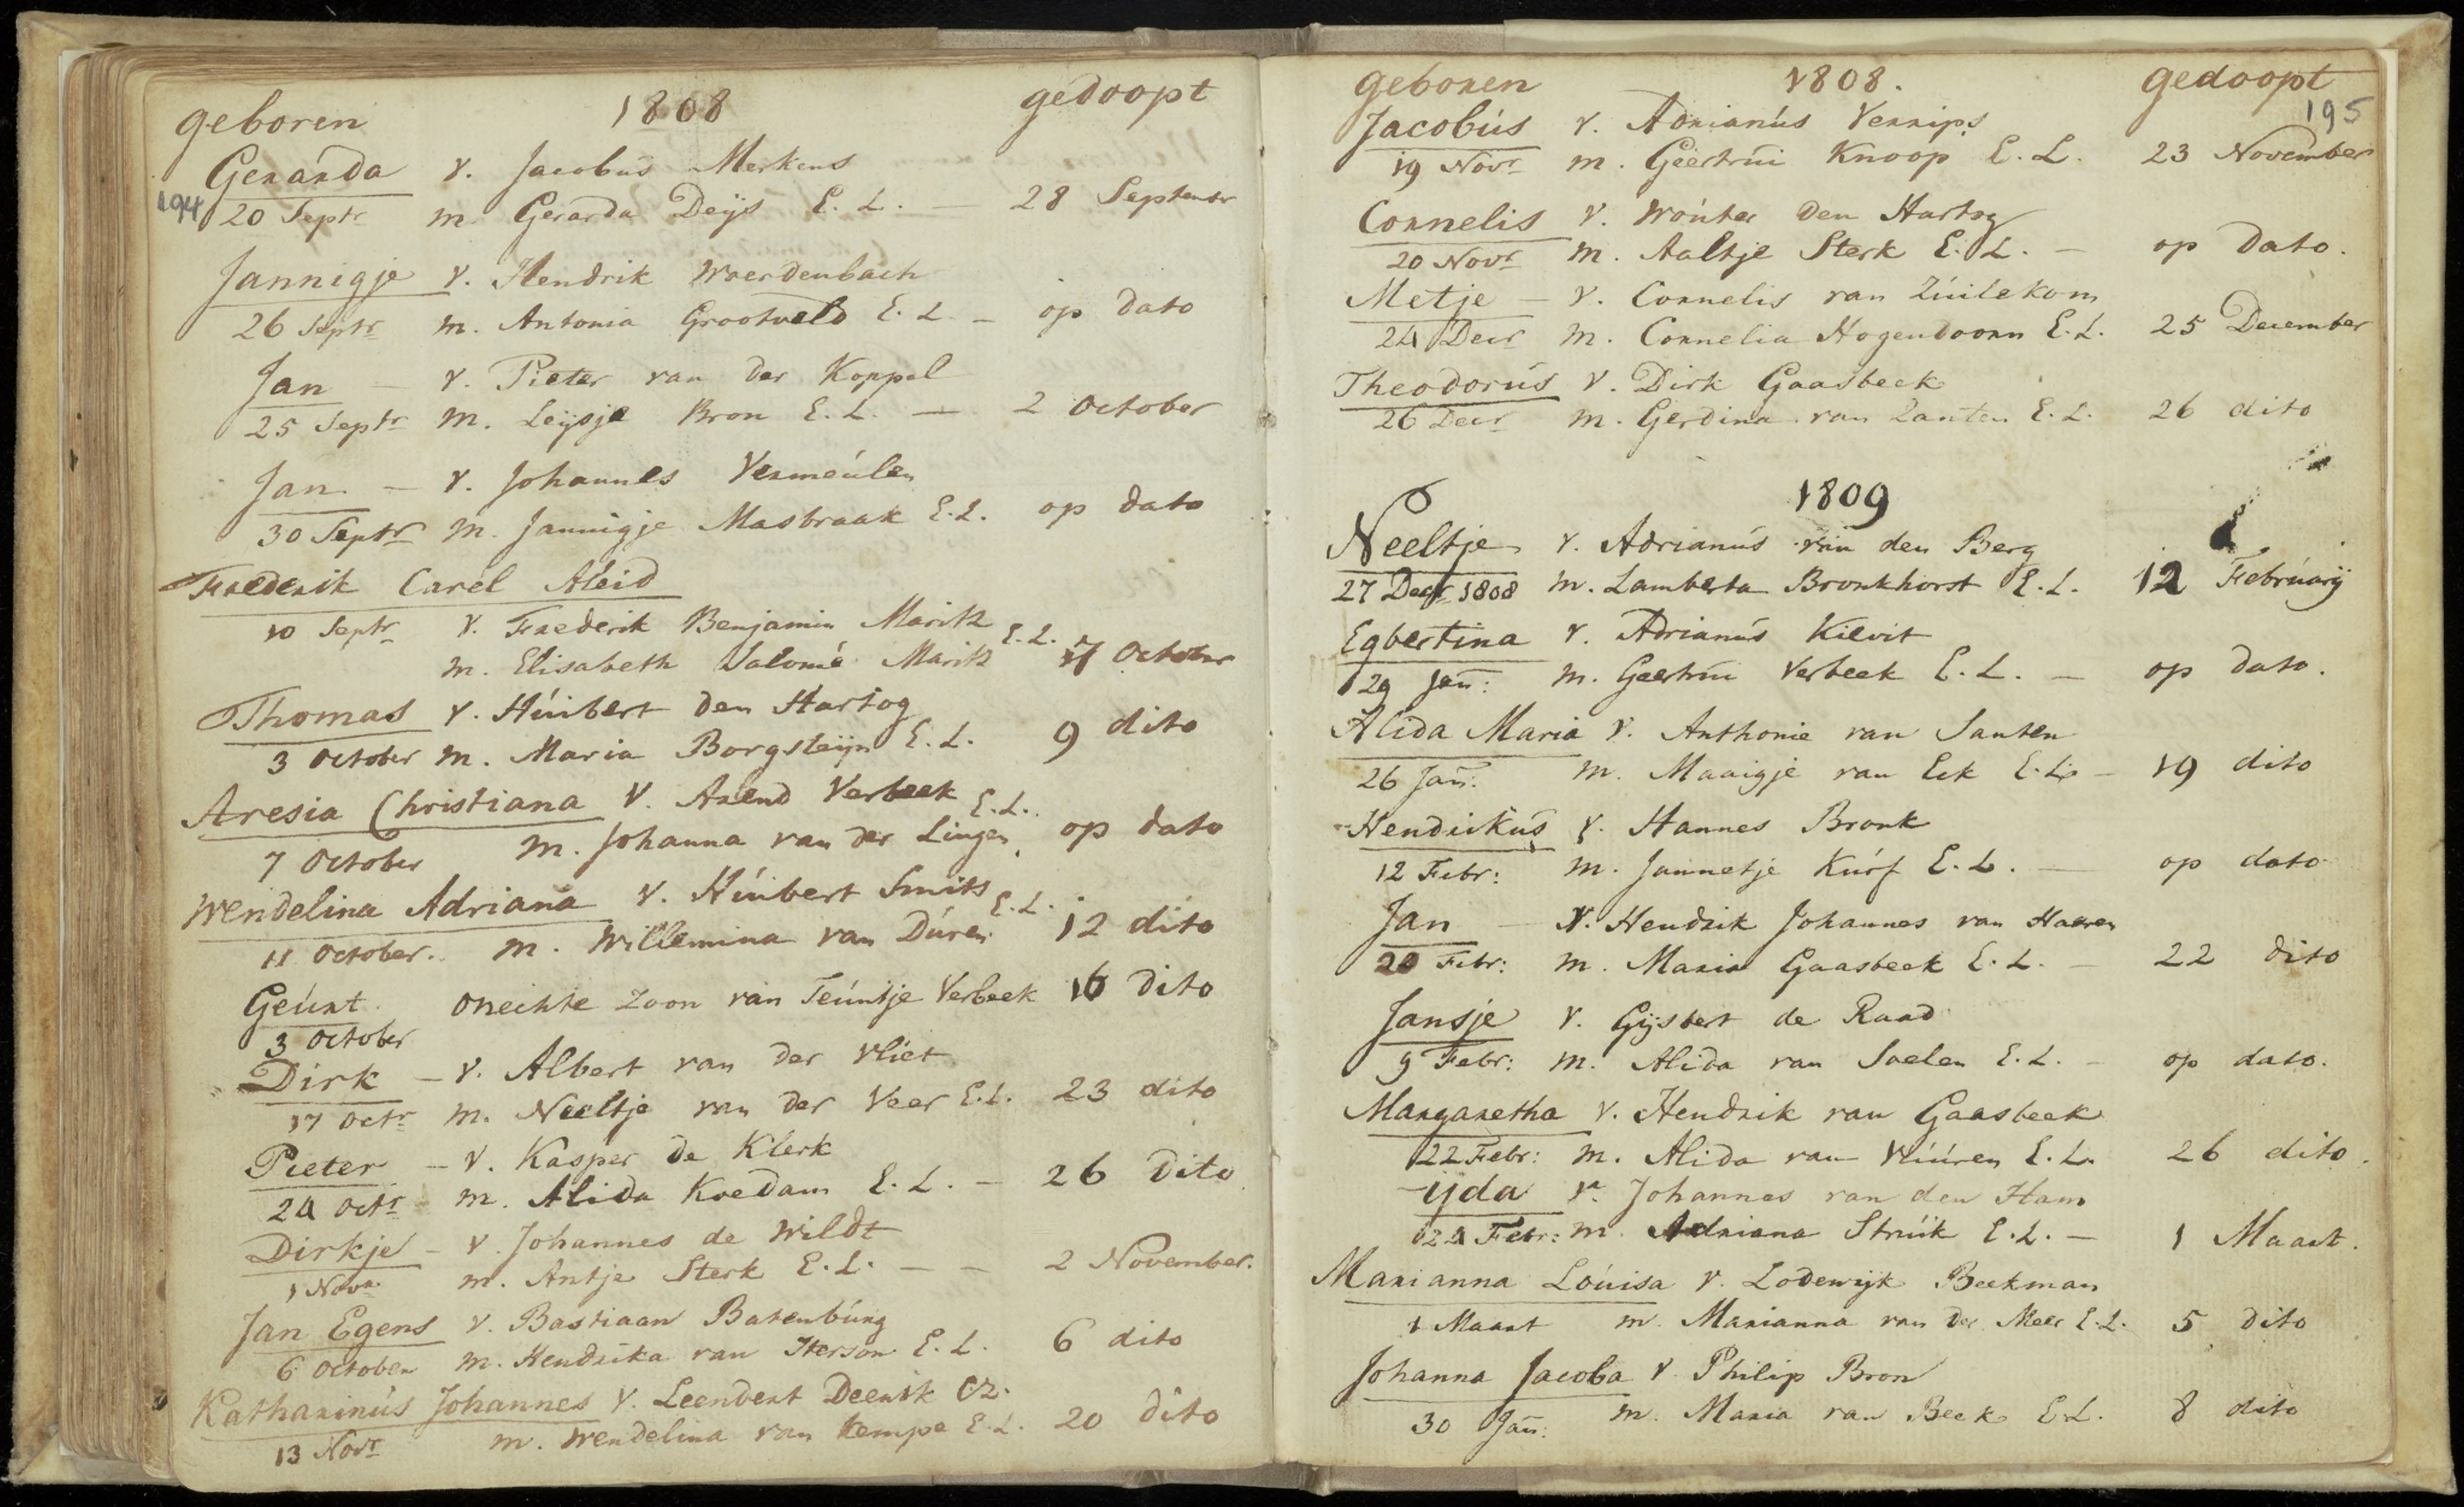 geboren 1808 gedoopt
Gerarda v. Jacobus Merkens
194 20 Septr m. Gerarda Deijs E. L. — 28 Septembr
Jannigje v. Hendrik Woerdenbach
26 Septr m. Antonia Grootveld E. L. — op dato
Jan — v. Pieter van der Koppel
25 Septr m. Leijsje Bron E. L. — 2 October
Jan — v. Johannes Vermeúlen
30 Septr m. Jannigje Masbraak E.L. op dato
Frederik Carel Aleid
10 Septr v. Frederik Benjamin Maritz
m. Elisabeth Salomé Maritz E.L. 7 October
Thomas v. Húibert den Hartog
3 October m. Maria Borgsteijn E. L. 9 dito
Aresia Christiana v. Arend Verbeek E.L.
7 October m. Johanna van der Lingen op dato
Wendelina Adriana v. Húibert Smits E.L.
11 October. m. Willemina van Dúren 12 dito
Geúrt onechte Zoon van Teúntje Verbeek 16 dito
3 October
Dirk — v. Albert van der Vliet
17 Octr m. Neeltje van der Veer E.L. 23 dito
Pieter — v. Kasper de Klerk
24 Octr m. Alida Koedam E. L. — 26 dito
Dirkje — v. Johannes de Wildt
1 Novr m. Antje Sterk E. L. — — 2 November.
Jan Egens v. Bastiaan Batenbúrg
6 October m. Hendrika van Iterson E. L. 6 dito
Katharinús Johannes v. Leendert Deerik Cz.
13 Novr m. Wendelina van Kempe E. L. 20 dito
geboren 1808. gedoopt
195
Jacobús v. Adrianús Verrips
19 Novr m. Geertrúi Knoop E. L. 23 November
Cornelis v. Woúter den Hartog
20 Novr m. Aaltje Sterk E. L. — op dato.
Metje — v. Cornelis van Zúilekom
24 Decr m. Cornelia Hogendoorn E.L. 25 December
Theodorús v. Dirk Gaasbeek
26 Decr m. Gerdina van Zanten E. L. 26 dito
1809
Neeltje v. Adrianús van den Berg
27 Decr 1808 m. Lamberta Bronkhorst E. L. 12 Febrúarij
Egbertina v. Adrianús Kievit
29 Jan: m. Geertrúi Verbeek E. L. — op dato.
Alida Maria v. Anthonie van Santen
26 Jan: m. Maaigje van Eck E. L. — 19 dito
Hendrikús v. Hannes Bronk
12 Febr: m. Jannetje Kúrf E. L. — op dato
Jan — v. Hendrik Johannes van Haaren
20 Febr: m. Maria Gaasbeek E. L. — 22 dito
Jansje v. Gijsbert de Raad
9 Febr: m. Alida van Soelen E. L. — op dato.
Margaretha v. Hendrik van Gaasbeek
22 Febr: m. Alida van Vúúren E. L. 26 dito.
ijda v. Johannes van den Ham
24 Febr: m. Adriana Strúik E. L. — 1 Maart.
Marianna Loúisa v. Lodewijk Beekman
1 Maart m. Marianna van der Meer E.L. 5 dito
Johanna Jacoba v. Philip Bron
30 Jan: m. Maria van Beek E.L. 8 dito